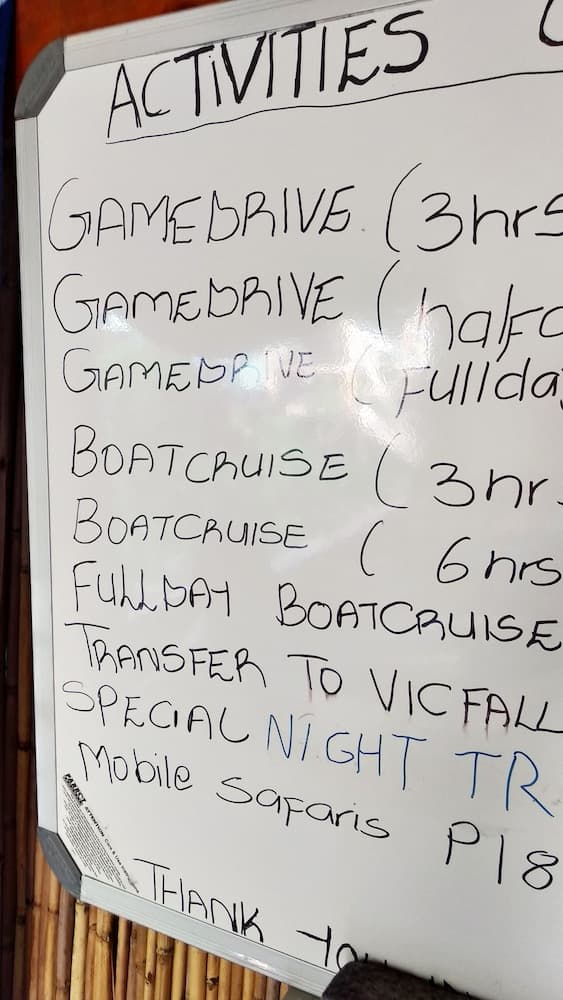 ACTIVITIES
GAMEDRIVE (3hrs
GAMEDRIVE (half
GAMEDRIVE (Fullda
BOATCRUISE (3hr
BOATCRUISE ( 6hrs
FULLDAY BOATCRUISE
TRANSFER TO VICFALL
SPECIAL NIGHT TR
Mobile Safaris P18
PARROT ATTENTION
THANK YOU